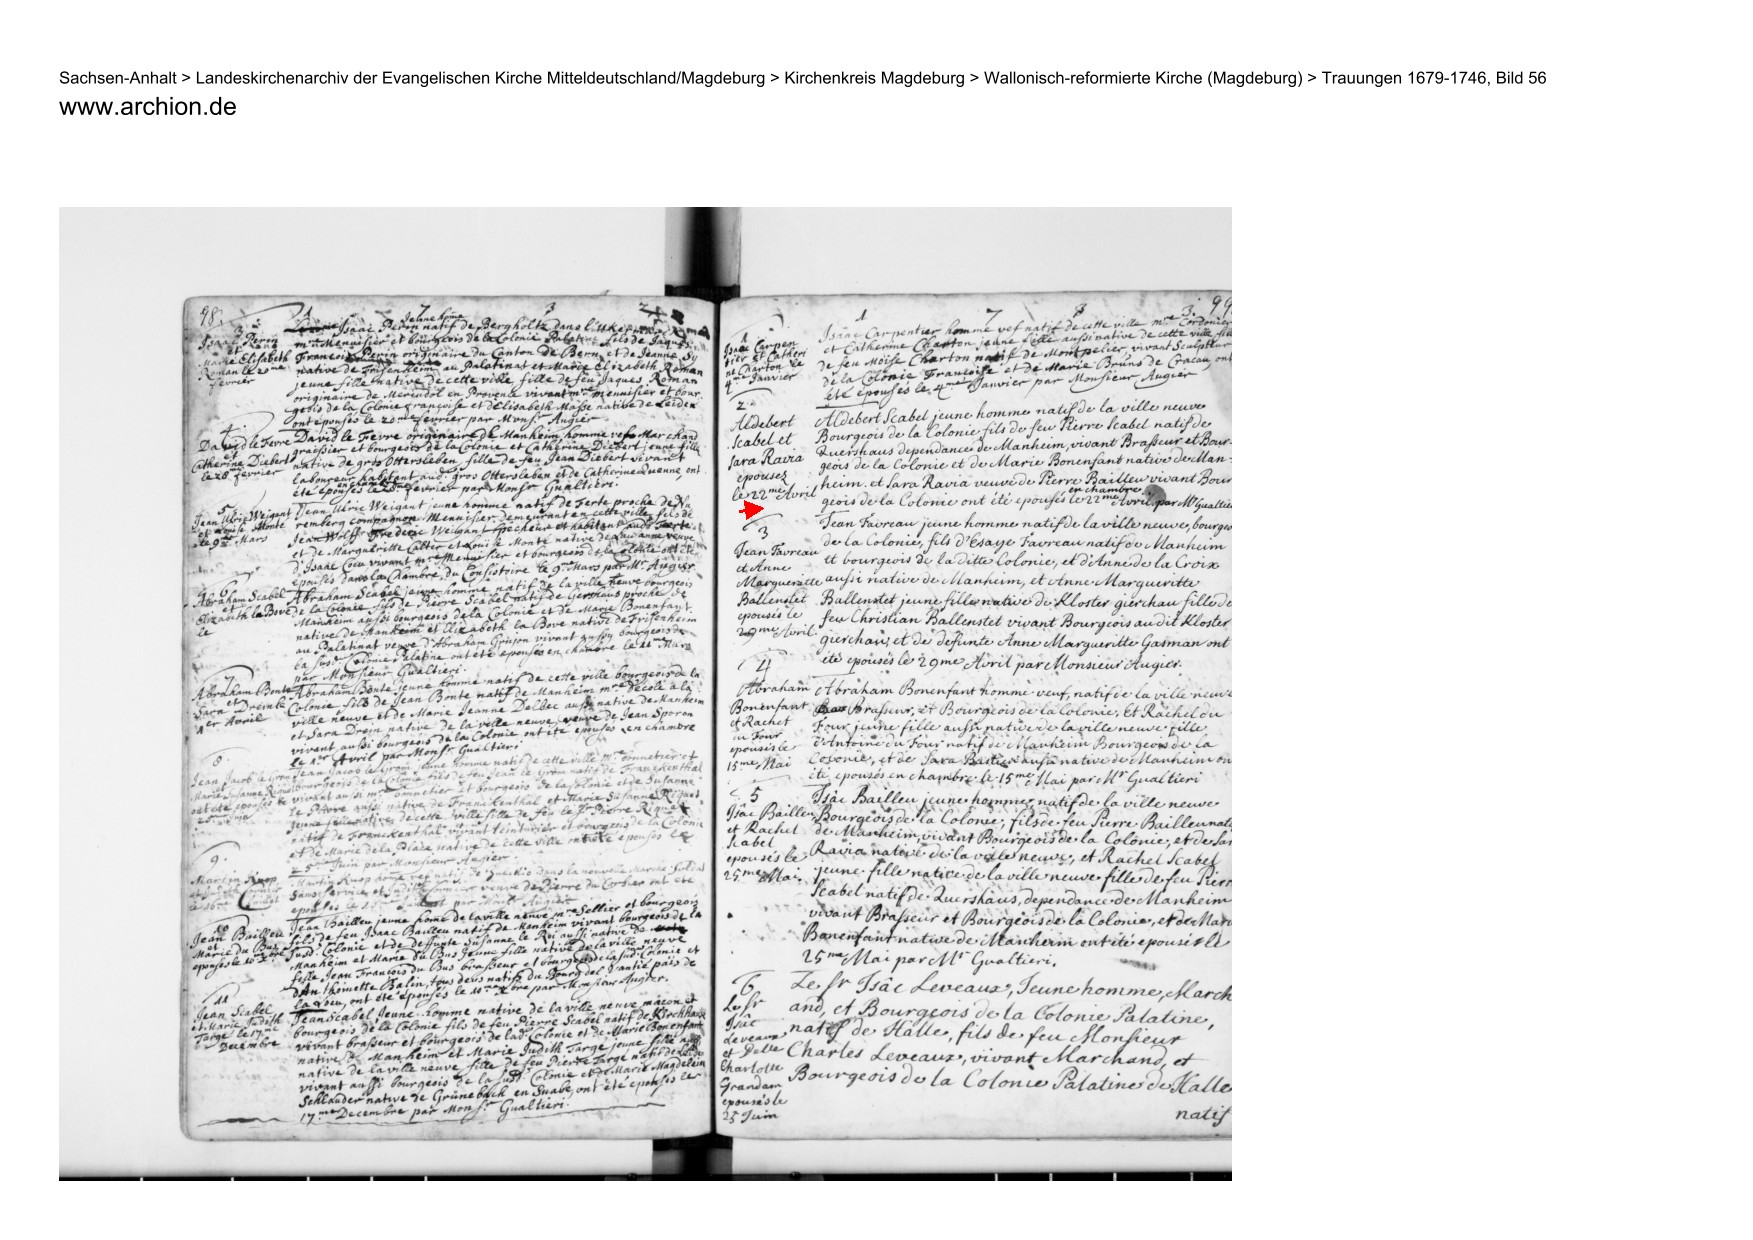 Sachsen-Anhalt > Landeskirchenarchiv der Evangelischen Kirche Mitteldeutschland/Magdeburg > Kirchenkreis Magdeburg > Wallonisch-reformierte Kirche (Magdeburg) > Trauungen 1679-1746, Bild 56
www.archion.de
98.
1 7 3 2
3
Isaac Perin
et
Marie Elisabeth
Roman le 20me
fevrier
Jeune home
Isaac Perin natif de Bergholtz dans l'
mre Menuisier et bourgeois de la Colonie Palatine fils de Jaques
François Perin originaire du Canton de Bern et de Jeanne
native de Frisenheim au Palatinat et Marie Elizabeth Roman
jeune fille native de cette ville fille de feu Jaques Roman
originaire de Merindol en Provence vivant mre menuisier et bour-
geois de la Colonie françoise et d'Elisabeth Masse native de Leiden
ont épousés le 20me fevrier par Monsr. Augier
4
David le Fevre
et
Catherine Diebert
le 28 fevrier
David le Fevre originaire de Manheim homme vef Marchand
graissier et bourgeois de la Colonie et Catherine Diebert jeune fille
native de gros Ottersleben fille de feu Jean Diebert vivant
laboureur habitant aud. gros Ottersleben et de Catherine ont
en chambre
été épousés le 28 fevrier par Monsr Gualtieri.
5
Jean Ulric Weigant
et Louise Monté
le 9me Mars
Jean Ulric Weigant jeune homme natif de Ferte proche de Nu
remberg compagnon Menuisier demeurant en cette ville fils de
Jean Wolff Frederic Weigant pecheur et habitant aud.
et de Margueritte et Louise Monté native de veuve
d'Isaac Cocu vivant mre Menuisier et bourgeois de la Colonie ont été
epousés dans la Chambre du Consistoire le 9me Mars par Mr. Augier
6
Abraham Scabel
et
Elizabeth la Bove
le
Abraham Scabel jeune homme natif de la ville neuve bourgeois
de la Colonie fils de Pierre Scabel natif de proche de
Manheim aussi bourgeois de la Colonie et de Marie Bonenfant
native de Manheim et Elizabeth la Bove native de Frisenheim
au Palatinat veuve d'Abraham Grujon vivant aussy bourgeois de
la susd. Colonie Palatine ont été épouses en chambre le Mars
par Monsieur Gualtieri.
7
Abraham Bonte
et
Sara Drein le
1er Avril
Abraham Bonte jeune homme natif de cette ville bourgeois de la
Colonie fils de Jean Bonte natif de Manheim mre d'école à la
ville neuve et de Marie Jeanne Delbec aussi native de Manheim
et Sara Drein native de la ville neuve veuve de Jean Sporon
vivant aussi bourgeois de la Colonie ont été épousés en chambre
le 1er Avril par Monsr Gualtieri
8
Jean Jacob le Gron
Marie Susanne Riquet
ont été épousés le
Jean Jacob le Gron jeune homme natif de cette ville mre bonnetier et
bourgeois de la Colonie fils de feu Jean le Gron natif de Franckenthal
vivant aussi mre bonnetier et bourgeois de la Colonie et de Susanne
le Pievre aussi native de Franckenthal et Marie Susanne Riquet
jeune fille native de cette ville fille de feu le Sr Pierre Riquet
natif de Franckenthal vivant teinturier et bourgeois de la Colonie
et de Marie de la Plaze native de cette ville ont été epousés le
25me Juin par Monsieur Augier.
9.
Martin Knop
Martin Knop home vef natif de dans la nouvelle Marche Soldat
veuve de Pierre du Corbier ont été
par Monsr Augier
10
Jean Bailleu
et
Marie du Bus
epousés le 10
Jean Bailleu jeune home de la ville neuve mre Sellier et bourgeois
fils de feu Isaac Bailleu natif de Manheim vivant bourgeois de la
susd. Colonie et de deffunte Susanne le Roi aussi native de
Manheim et Marie du Bus jeune fille native de la ville neuve
fille Jean François du Bus brasseur et bourgeois de la susd. Colonie et
d'Anthoinette Balin, tous deux natifs du bourg del païs de
la Leu, ont été épousés le 10me xbre par Monsieur Augier.
11
Jean Scabel
et Marie Judith
Targé le 17me
Decembre
Jean Scabel Jeune homme native de la ville neuve maçon et
bourgeois de la Colonie fils de feu Pierre Scabel natif de Kirchhau
vivant brasseur et bourgeois de lad. Colonie et de Marie Bonenfant
native de Manheim et Marie Judith Targé jeune fille aussi
native de la ville neuve fille de feu Pierre Targé natif de
vivant aussi bourgeois de la susd. Colonie et de Marie Magdelein
Schlauder native de Grüneback en Suabe, ont été epousés le
17me Decembre par Monsr. Gualtieri.
99
1 7 3 3.
1
Isaac Carpen
tier et Catheri
ne Charton le
4me Janvier
Isaac Carpentier homme vef natif de cette ville mre Cordonier
et Catherine Charton jeune fille aussi native de cette ville fille
de feu Moïse Charton natif de Montpelier vivant Sculpteur
de la Colonie Françoise et de Marie Bruns de Cracau ont
été epousés le 4me Janvier par Monsieur Augier
2
Aldebert
Scabel et
Sara Ravia
epousez
le 22me Avril
Aldebert Scabel jeune homme natif de la ville neuve
Bourgeois de la Colonie fils de feu Pierre Scabel natif de
Quershaus dependance de Manheim, vivant Brasseur et Bour-
geois de la Colonie et de Marie Bonenfant native de Man-
heim. et Sara Ravia veuve de Pierre Bailleu vivant Bour
en chambre
geois de la Colonie ont été epousés le 22me Avril par Mr Gualtie
3
Jean Favreau
et Anne
Margueritte
Ballenstet
epousés le
29me Avril
Jean Favreau jeune homme natif de la ville neuve, bourgeo
de la Colonie, fils d'Esaye Favreau natif de Manheim
et bourgeois de la ditte Colonie, et d'Anne de la Croix
aussi native de Manheim, et Anne Margueritte
Ballenstet jeune fille native de Kloster gierchau fille de
feu Christian Ballenstet vivant Bourgeois au dit Kloster
gierchau, et de defunte Anne Margueritte Gasman ont
été epousés le 29me Avril par Monsieur Augier.
4
Abraham
Bonenfant
et Rachel
du Four
epousés le
15me Mai
Abraham Bonenfant homme veuf, natif de la ville neuve
Brasseur, et Bourgeois de la Colonie, Et Rachel du
Four jeune fille aussi native de la ville neuve fille
d'Antoine du Four natif de Manheim Bourgeois de la
Colonie, et de Sara Bastien aussi native de Manheim on
été epousés en chambre le 15me Mai par Mr Gualtieri
5
Isac Bailleu
et Rachel
Scabel
epousés le
25me Mai
Isac Bailleu jeune homme, natif de la ville neuve
Bourgeois de la Colonie, fils de feu Pierre Bailleu nati
de Manheim, vivant Bourgeois de la Colonie, et de Sar
Ravia native de la ville neuve, et Rachel Scabel
jeune fille native de la ville neuve fille de feu Pierr
Scabel natif de Quershaus, dependance de Manheim
vivant Brasseur et Bourgeois de la Colonie, et de Mari
Bonenfant native de Manheim ont été epousés le
25me Mai par Mr Gualtieri.
6
Le Sr
Isâc
Leveaux
et Delle
Charlotte
Grandam
epousés le
25 Juin
Le Sr Isâc Leveaux, Jeune homme, March
and, et Bourgeois de la Colonie Palatine,
natif de Halle, fils de feu Monsieur
Charles Leveaux, vivant Marchand, et
Bourgeois de la Colonie Palatine de Halle
natif